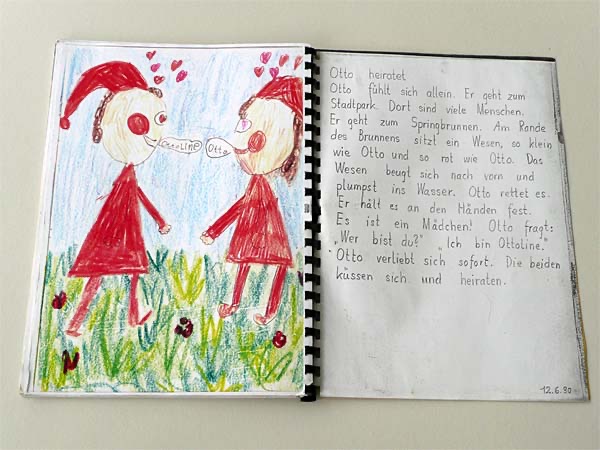 Ottoline
Otto
Otto heiratet
Otto fühlt sich allein. Er geht zum
Stadtpark. Dort sind viele Menschen.
Er geht zum Springbrunnen. Am Rande
des Brunnens sitzt ein Wesen, so klein
wie Otto und so rot wie Otto. Das
Wesen beugt sich nach vorn und
plumpst ins Wasser. Otto rettet es.
Er hält es an den Händen fest.
Es ist ein Mädchen! Otto fragt:
„Wer bist du?" „Ich bin Ottoline."
Otto verliebt sich sofort. Die beiden
küssen sich und heiraten.
12.6.90